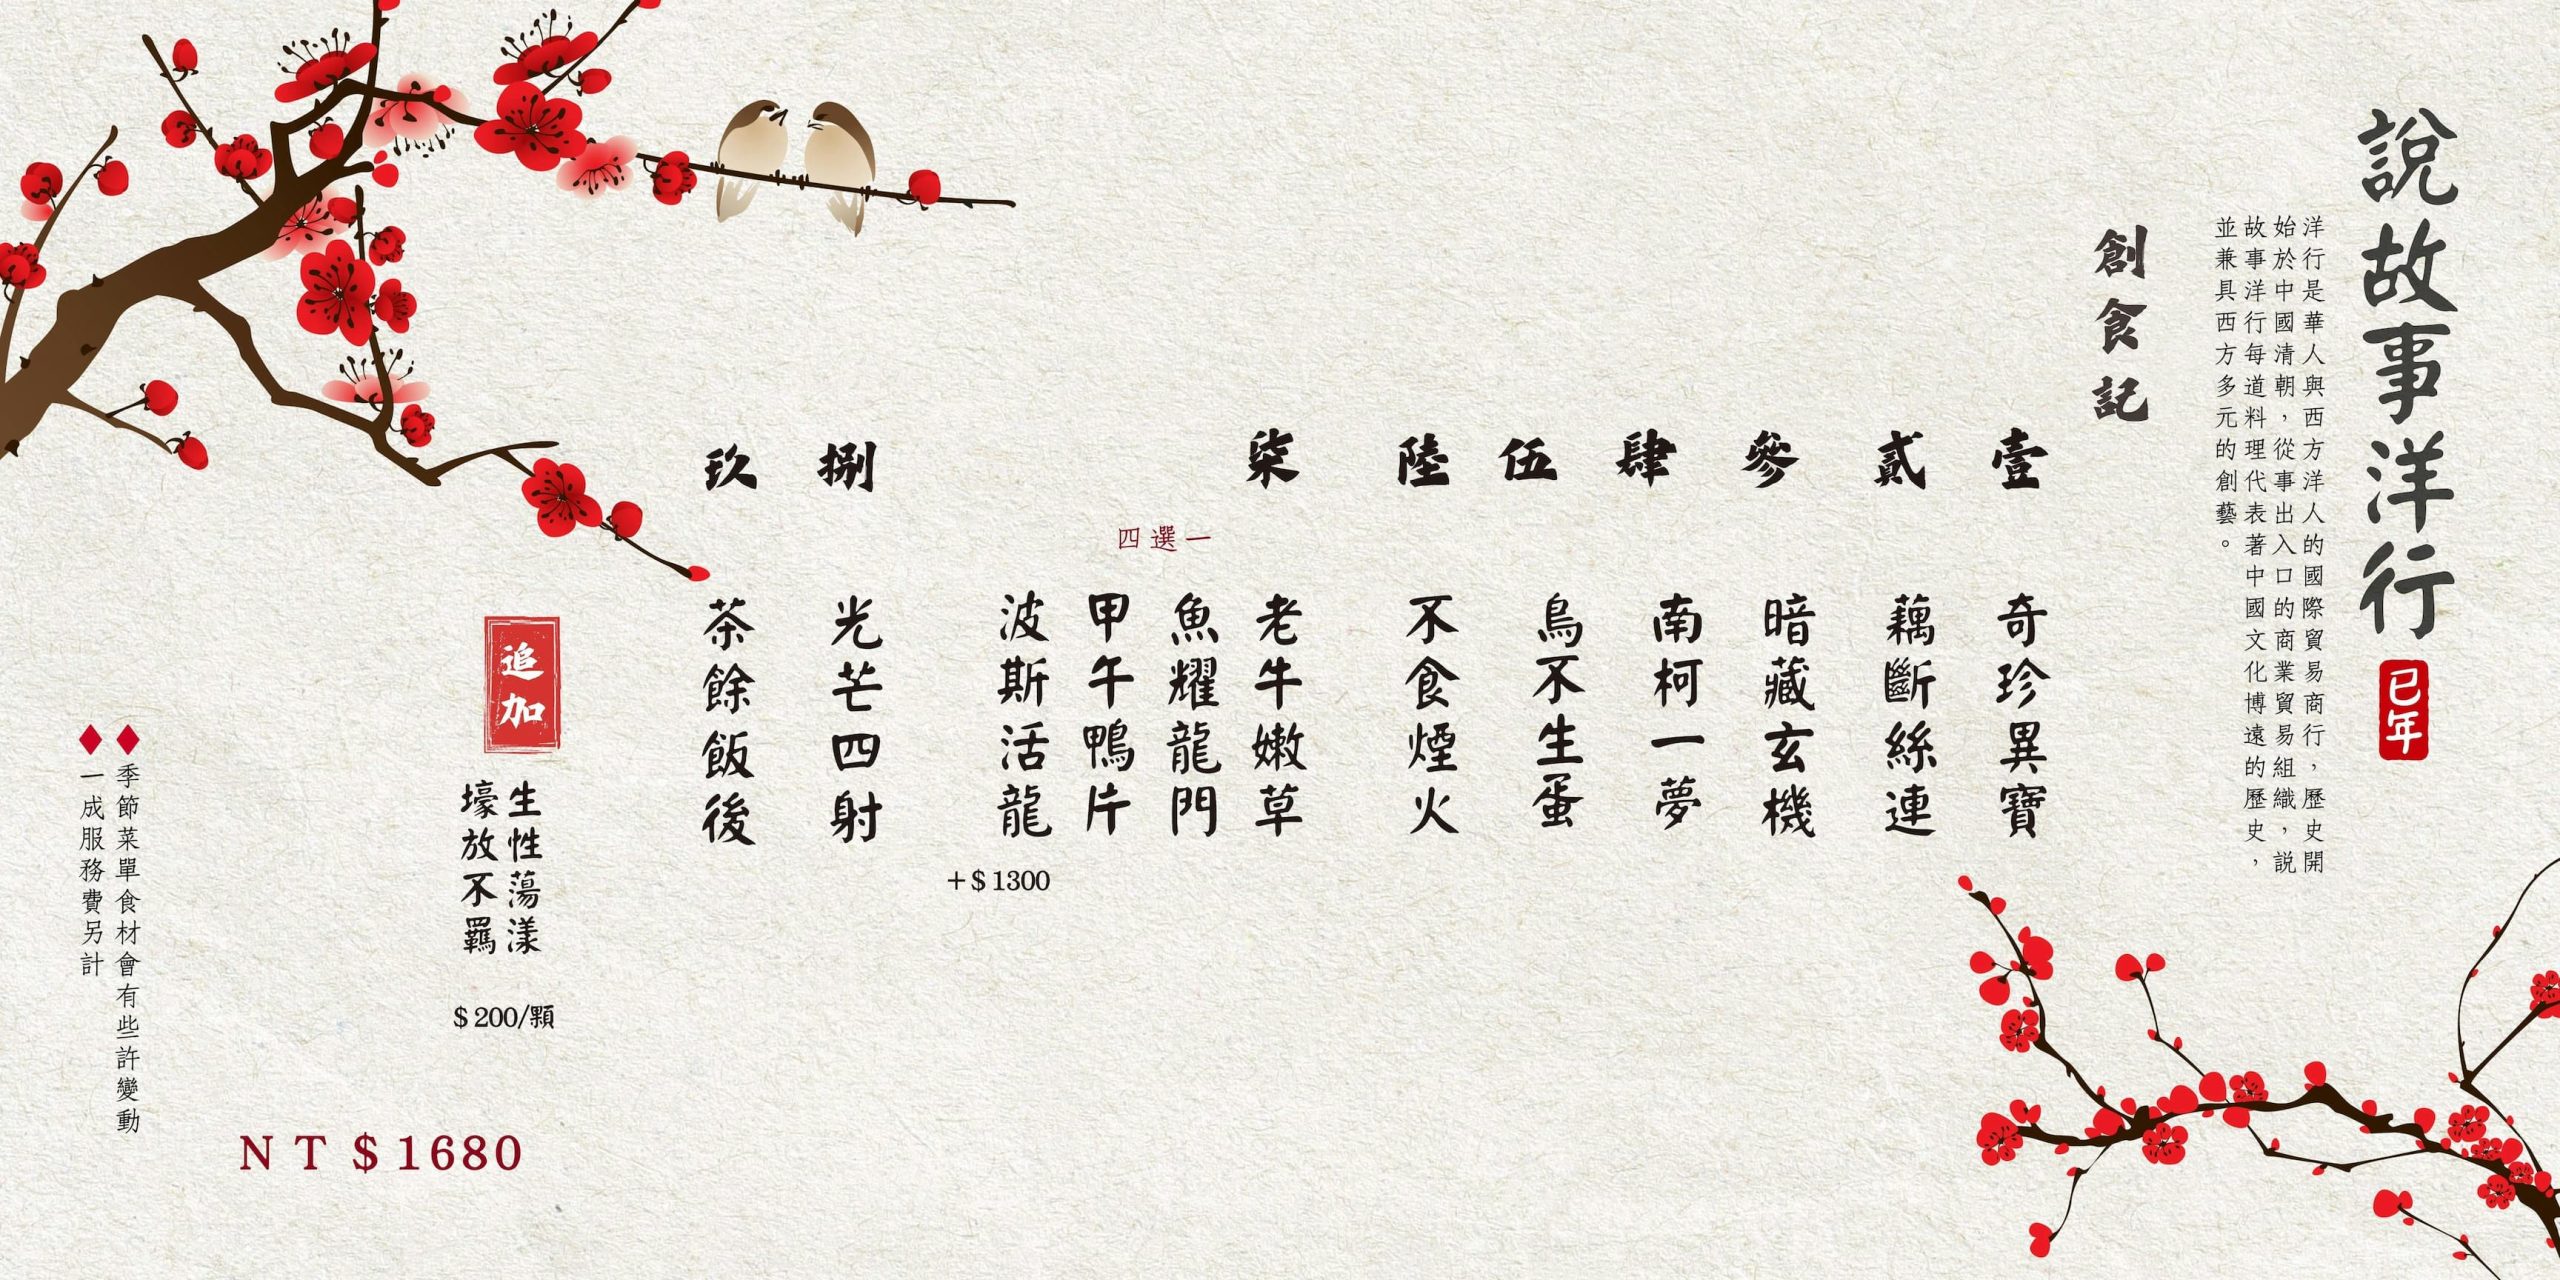 說故事洋行
已年
洋行是華人與西方洋人的國際貿易商行，歷史開
始於中國清朝，從事出入口的商業貿易組織，説
故事洋行每道料理代表著中國文化博遠的歷史，
並兼具西方多元的創藝。
創食記
壹
奇珍異寶
貳
藕斷絲連
參
暗藏玄機
肆
南柯一夢
伍
鳥不生蛋
陸
不食煙火
柒
四選一
老牛嫩草
魚耀龍門
甲午鴨片
波斯活龍
+$1300
捌
光芒四射
玖
茶餘飯後
追加
生性蕩漾
壕放不羈
$200/顆
♦季節菜單食材會有些許變動
♦一成服務費另計
NT$1680